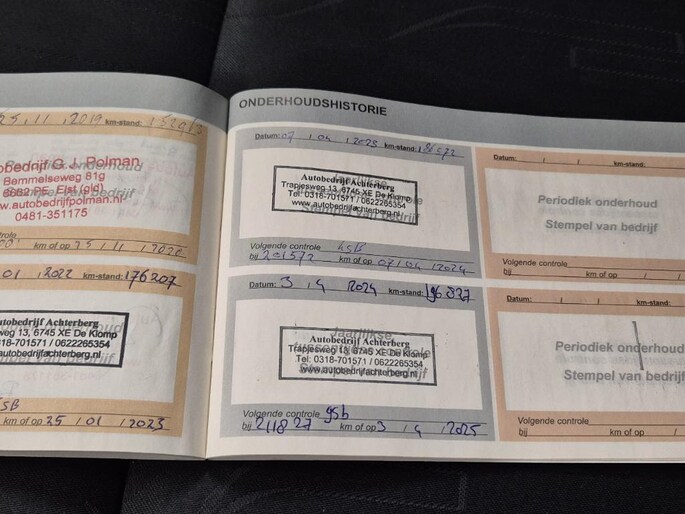 25 , 11 , 2019 km-stand:
obedrijf G.J. Polman
Periodiek onderhoud
Bemmelseweg 81g
6662 PE Elst (gld)
Stempel van bedrijf
w.autobedrijfpolman.nl
0481-351175
km of op 25 , 11 , 2020
01 , 2022 km-stand: 176207
utobedrijf Achterberg
weg 13, 6745 XE De Klomp
318-701571 / 0622265354
autobedrijfachterberg.nl
km of op 25 / 01 / 2023
ONDERHOUDSHISTORIE
Datum: 07 , 04 , 2023 km-stand: 186572
Jaarlijkse
Autobedrijf Achterberg
Trapjesweg 13, 6745 XE De Klomp
Tel: 0318-701571 / 0622265354
www.autobedrijfachterberg.nl
Stempel van bedrijf
Volgende controle GSB
bij 201572 km of op 07 / 04 / 2024
Datum: 3 , 4 2024 km-stand: 196827
Jaarlijkse
Autobedrijf Achterberg
Trapjesweg 13, 6745 XE De Klomp
Tel: 0318-701571 / 0622265354
www.autobedrijfachterberg.nl
Stempel van bedrijf
Volgende controle gsb
bij 211827 km of op 3 , 4 , 2025
Datum: / / km-stand:
Periodiek onderhoud
Stempel van bedrijf
Volgende controle
bij km of op / /
Datum: / / km-stand:
Periodiek onderhoud
Stempel van bedrijf
Volgende controle
bij km of op /